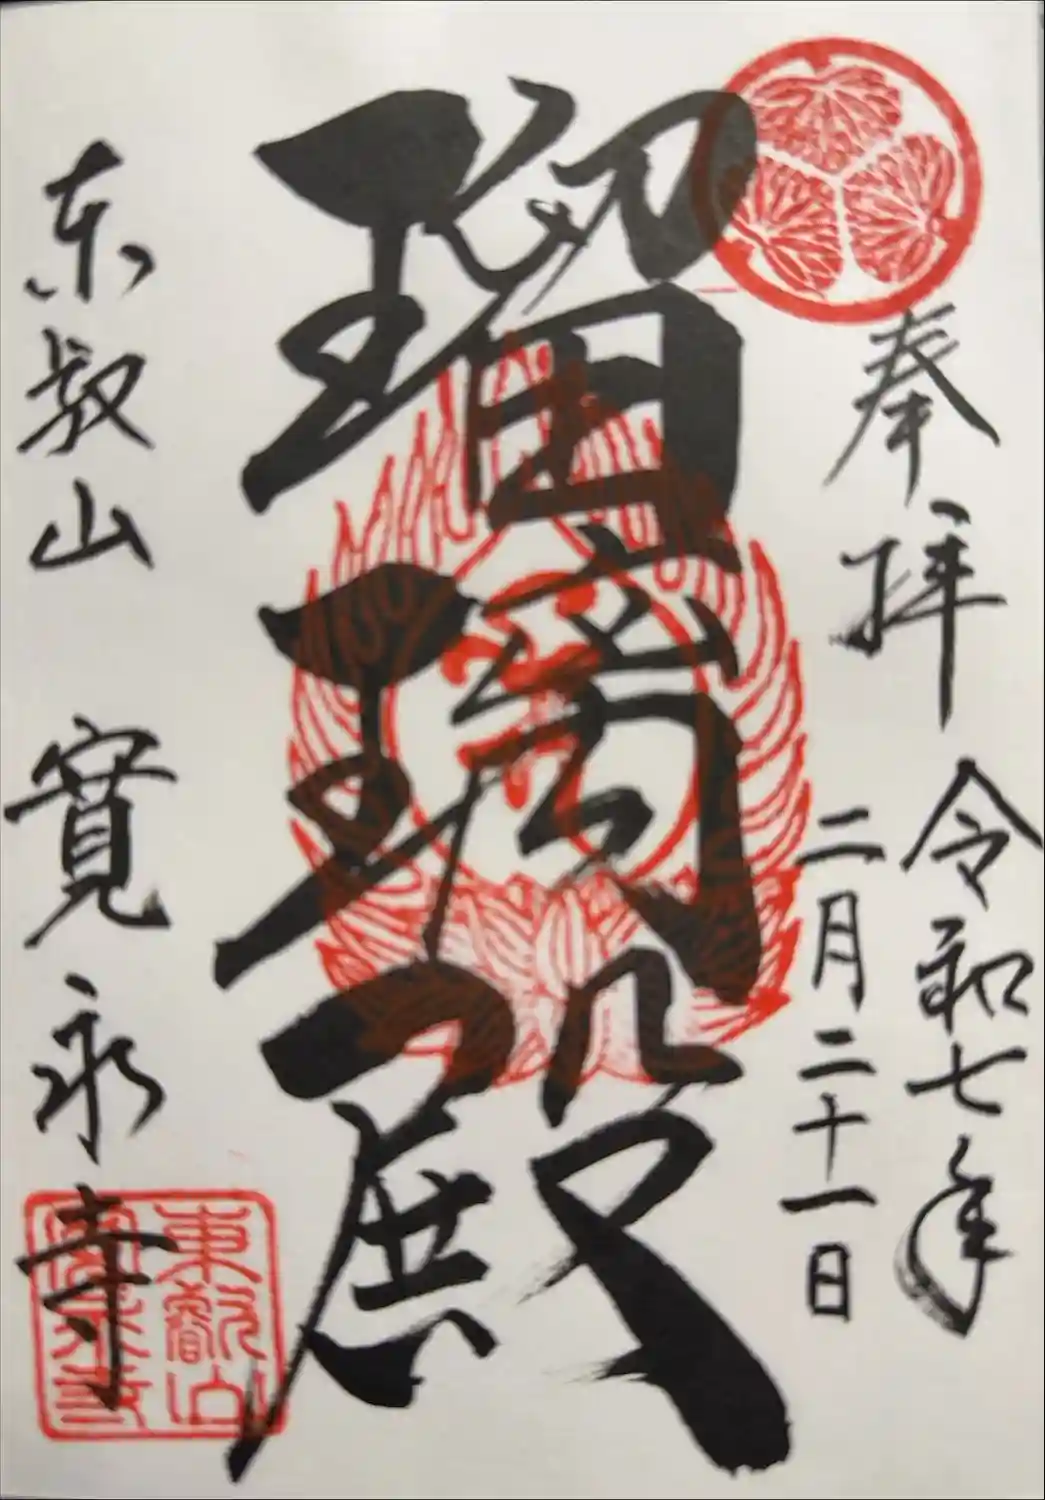 奉拝
令和七年
二月二十一日
瑠璃殿
东叡山 寛永寺
東叡山
寛永寺